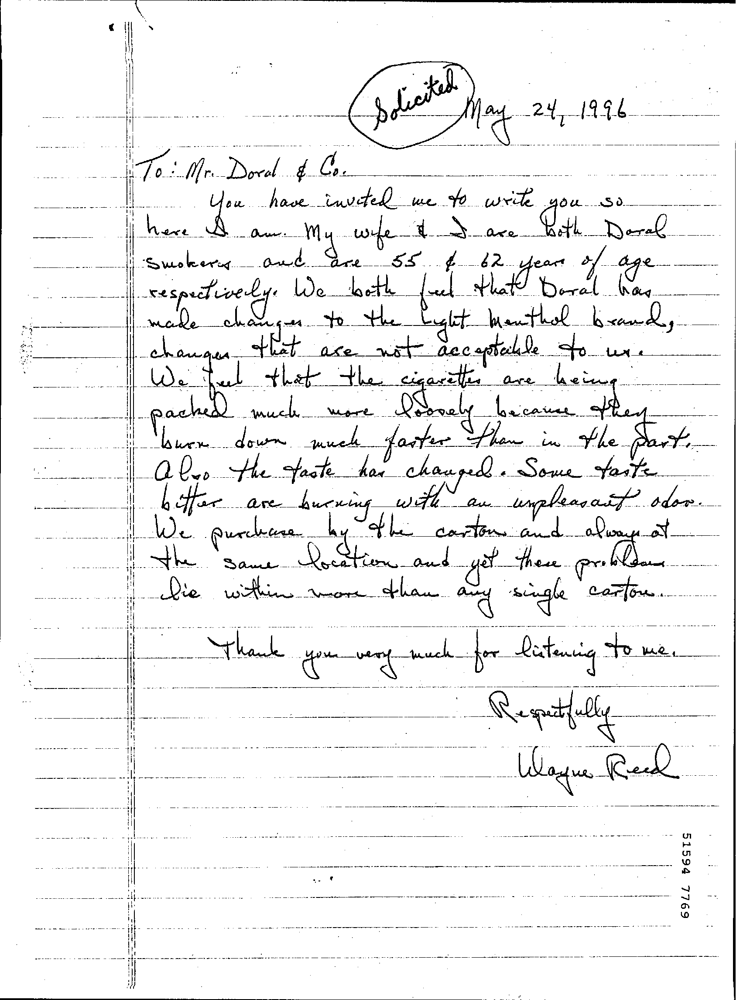 Solicited
May 24, 1996
To: Mr. Doral & Co.
You have invited me to write you so
here I am. My wife & I are both Doral
smokers and are 55 & 62 years of age
respectively. We both feel that Doral has
made changes to the Light Menthol brand,
changes that are not acceptable to us.
We feel that the cigarettes are being
packed much more loosely because they
burn down much faster than in the past.
Also the taste has changed. Some taste
bitter are burning with an unpleasant odor.
We purchase by the carton and always at
the same location and yet these problems
lie within more than any single carton.
Thank you very much for listening to me.
Respectfully
Wayne Reed
51594 7769